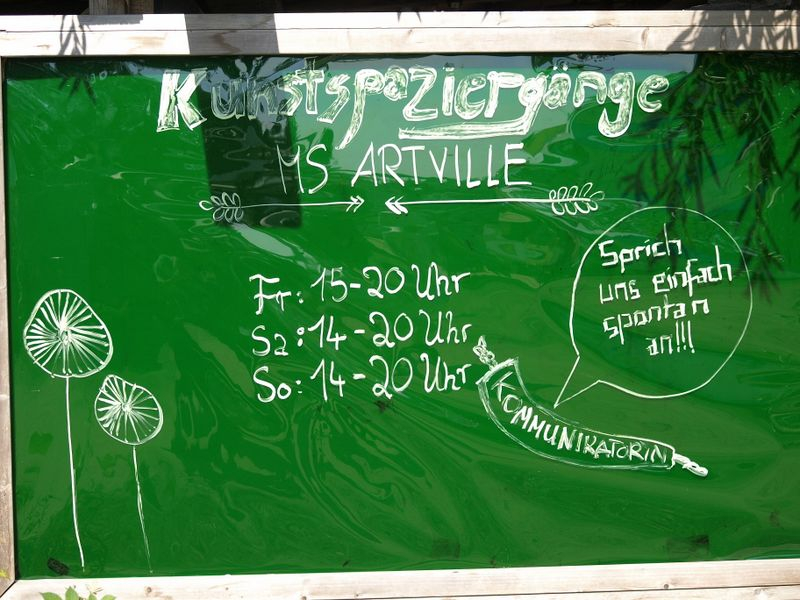 Kunstspaziergänge
MS ARTVILLE
Fr: 15-20 Uhr
Sa: 14-20 Uhr
So: 14-20 Uhr
Sprich
uns einfach
spontan
an!!!
KOMMUNIKATORIN